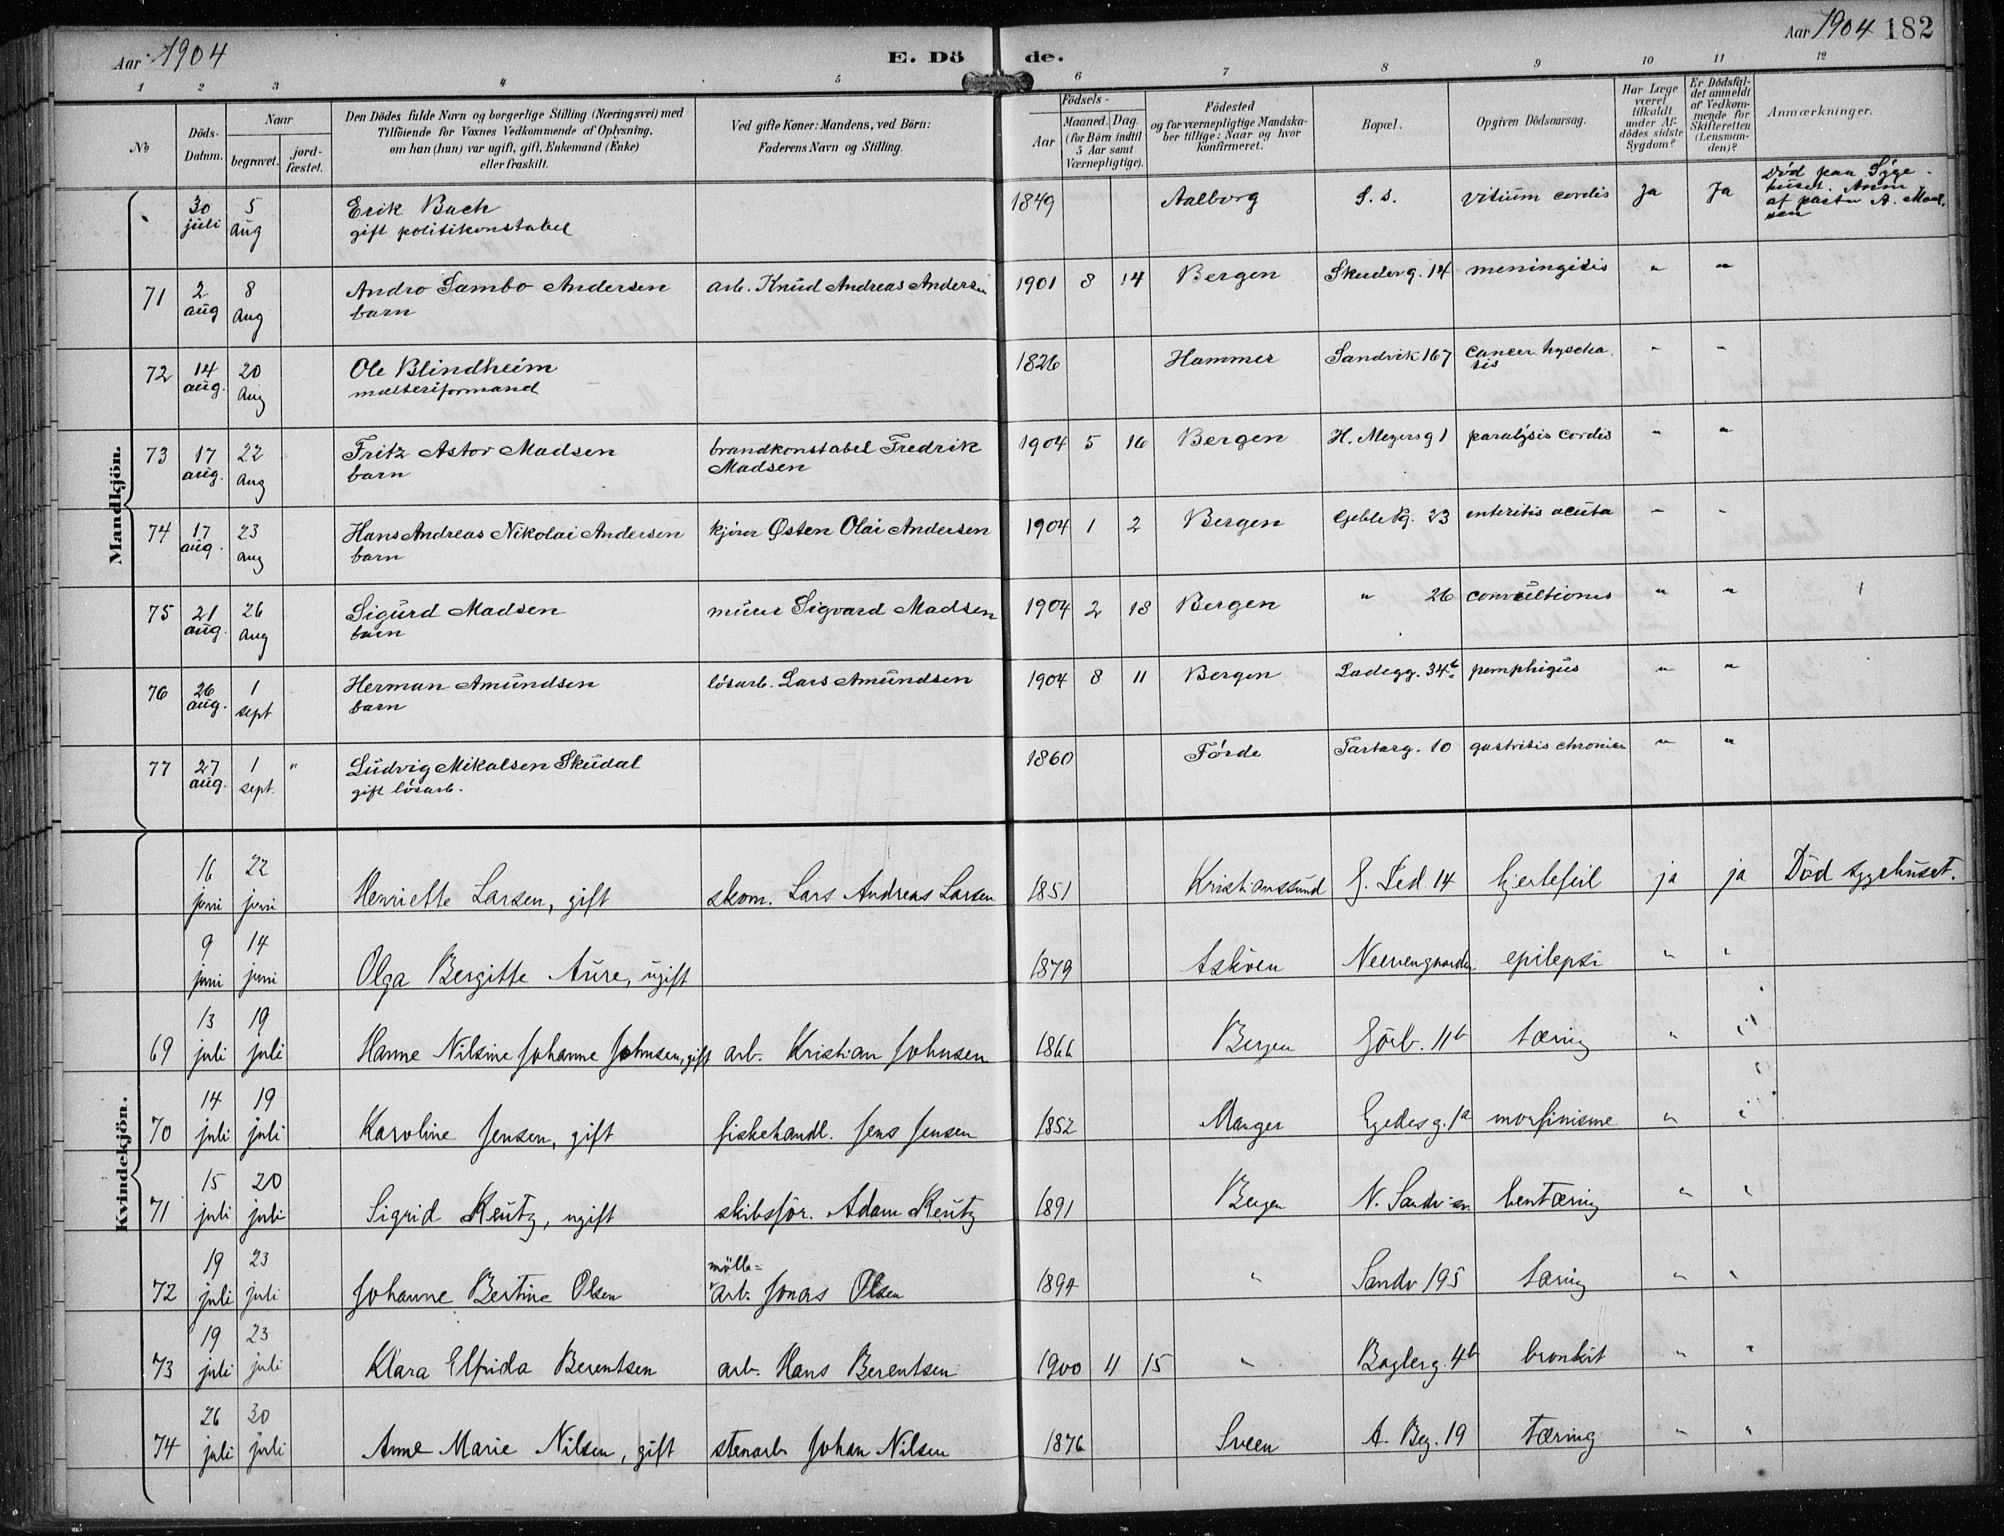 Aar 1904
E. Döde.
Aar 1904 182
1 2 3 4 5 6 7 8 9 10 11 12
No
Döds-Datum.
Naar
begravet.
jordfæstet.
Den Dödes fulde Navn og borgerlige Stilling (Næringsvei) med
Tilföiende for Voxnes Vedkommende af Oplysning,
om han (hun) var ugift, gift, Enkemand (Enke)
eller fraskilt.
Ved gifte Koner: Mandens, ved Börn:
Faderens Navn og Stilling.
Födsels-
Aar
Maaned. Dag.
(for Börn indtil
5 Aar samt
Værnepligtige).
Födested
og for værnepligtige Mandskaber tillige: Naar og hvor
konfirmeret.
Bopæl.
Opgiven Dödsaarsag.
Har Læge
været
tilkaldt
under Afdödes sidste
Sygdom?
Er Dödsfaldet anmeldt
af Vedkommende for
Skifteretten
(Lensmanden)?
Anmærkninger.
Mandkjön.
30 juli 5 aug Erik Bach 1849 Aalborg S. s. vitium cordis Ja Ja Död paa Sygehuset. Anm
gift politikonstabel af pastor A. Madsen
71 2 aug 8 aug Andro Sambo Andersen arb. Knud Andreas Andersen 1901 8 14 Bergen Skuderg. 14 meningitis " "
barn
72 14 aug. 20 aug Ole Blindheim 1826 Hammer Sandvik 167 cancer " "
malteriformand
73 17 aug. 22 aug Fritz Astor Madsen brandkonstabel Fredrik 1904 5 16 Bergen H. Meyersg 1 paralysis cordis " "
barn Madsen
74 17 aug. 23 aug Hans Andreas Nikolai Andersen kjörer Østen Olai Andersen 1904 1 2 Bergen 23 enteritis acuta " "
barn
75 21 aug. 26 aug Sigurd Madsen murer Sigvard Madsen 1904 2 18 Bergen " 26 convultiones " "
barn
76 26 aug. 1 sept Herman Amundsen lösarb. Lars Amundsen 1904 8 11 Bergen Ladegg. 34b pemphigus " "
barn
77 27 aug. 1 sept. " Ludvig Mikalsen Skudal 1860 Förde Tartarg. 10 gastritis chronica " "
gift lösarb.
Kvindekjön.
16 juni 22 juni Henriette Larsen, gift skom. Lars Andreas Larsen 1851 Kristianssund 14 hjertefeil ja ja Död sygehuset.
9 juni 14 juni Olga Bergitte Aure, ugift 1879 Asköen Neevengaarden epilepsi " "
69 13 juli 19 juli Hanne Nilsine Johanne Johnsen, gift arb. Kristian Johnsen 1866 Bergen 11b tæring " "
70 14 juli 19 juli Karoline Jensen, gift fiskehandl. Jens Jensen 1852 Manger Egedesg. 1a morfinisme " "
71 15 juli 20 juli Sigrid Kreutz, ugift skibsför. Adam Kreutz 1891 Bergen N. Sandv bentæring " "
72 19 juli 23 juli Johanne Bertine Olsen mölle-arb. Jonas Olsen 1894 " Sandv 195 tæring " "
73 19 juli 23 juli Klara Elfrida Berentsen arb. Hans Berentsen 1900 11 15 " Baglerg. 4b bronkit " "
74 26 juli 30 juli Anne Marie Nilsen, gift stenarb Johan Nilsen 1876 Sveen 19 tæring " "